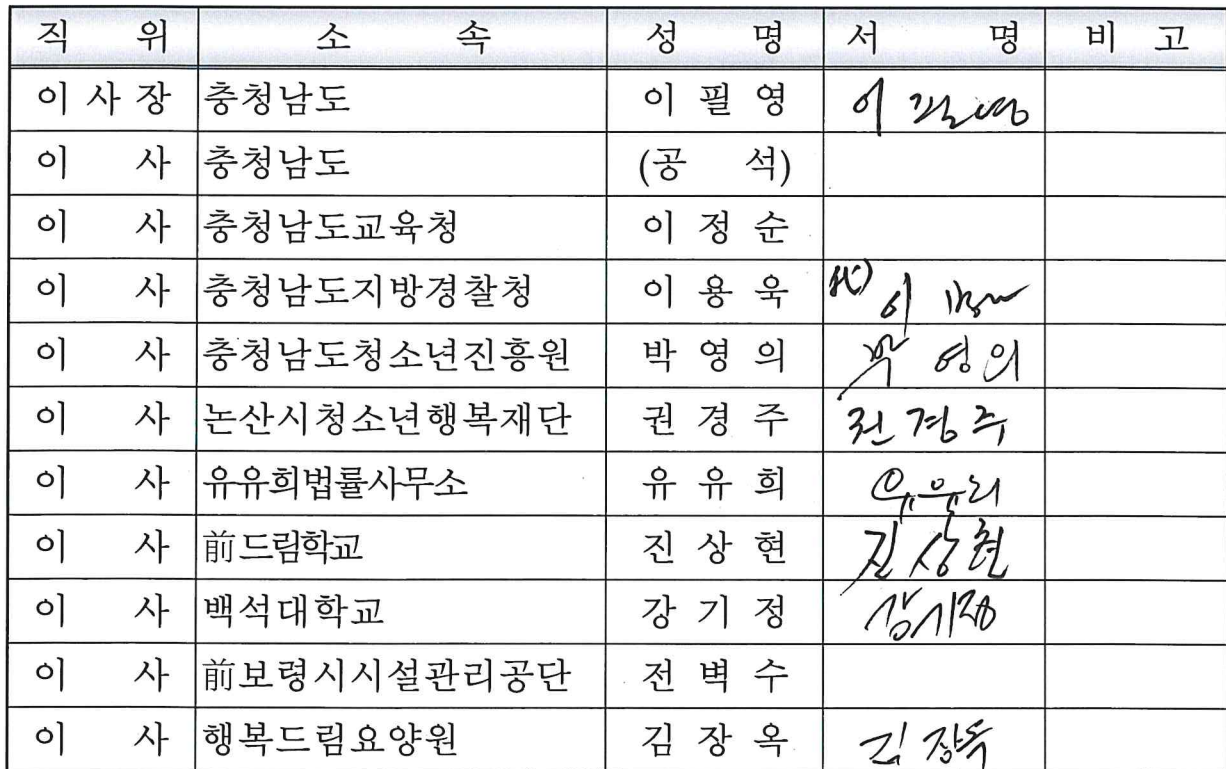 직 위 소 속 성 명 서 명 비 고
이 사 장 충청남도 이 필 영 이 필영
이 사 충청남도 (공 석)
이 사 충청남도교육청 이 정 순
이 사 충청남도지방경찰청 이 용 욱 代) 이
이 사 충청남도청소년진흥원 박 영 의 박 영의
이 사 논산시청소년행복재단 권 경 주 권경주
이 사 유유희법률사무소 유 유 희 유유희
이 사 前드림학교 진 상 현 진상현
이 사 백석대학교 강 기 정 강기정
이 사 前보령시시설관리공단 전 벽 수
이 사 행복드림요양원 김 장 옥 김 장옥